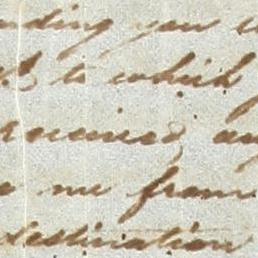 nding you
to which
received, an
me from
destination